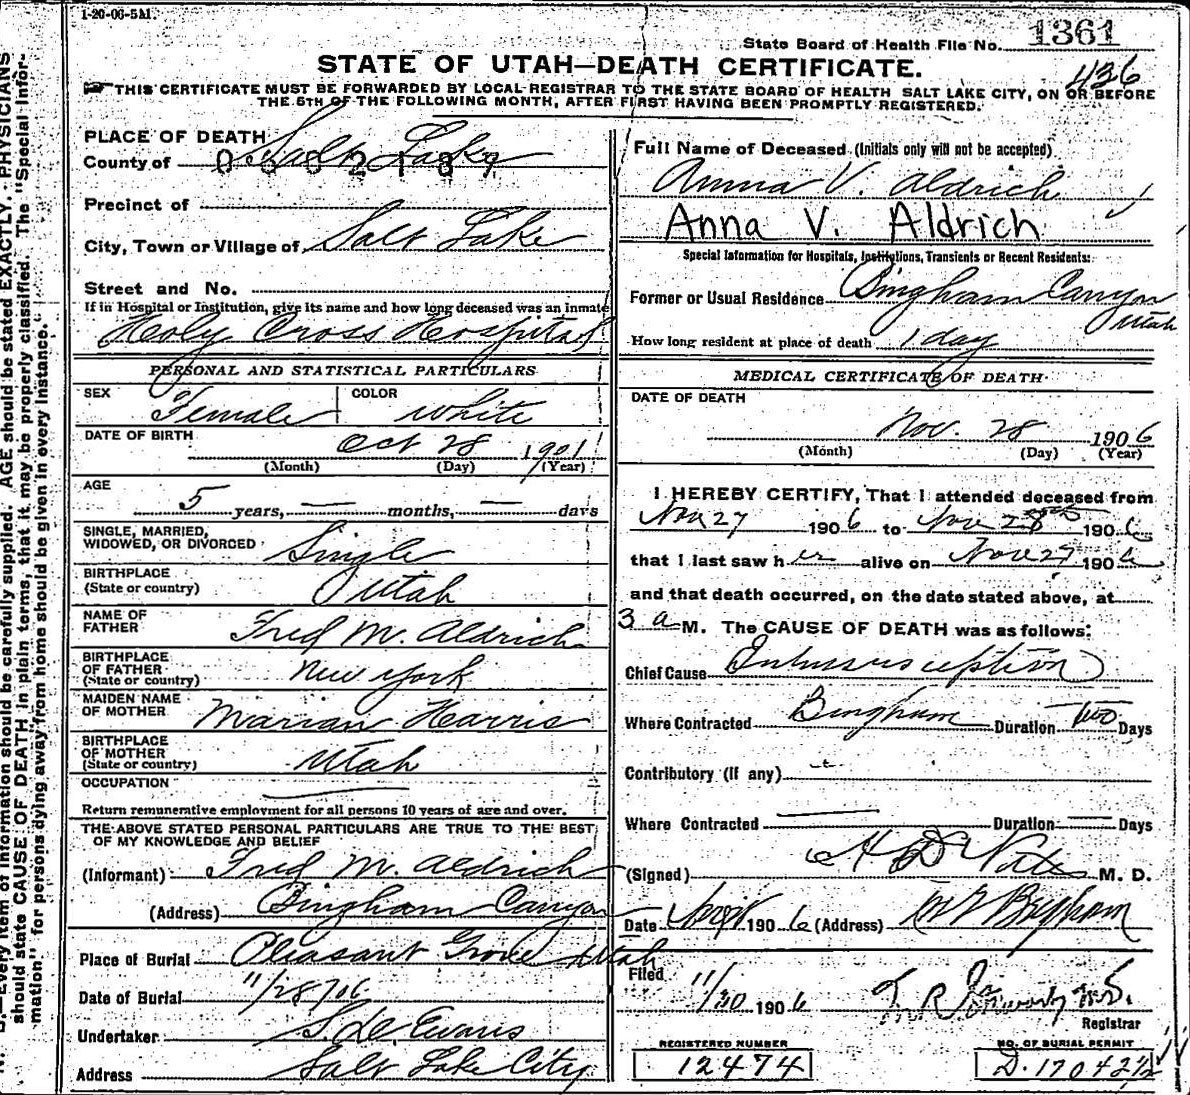 1-20-06-5M.
State Board of Health File No. 1361
STATE OF UTAH—DEATH CERTIFICATE.
436
THIS CERTIFICATE MUST BE FORWARDED BY LOCAL REGISTRAR TO THE STATE BOARD OF HEALTH SALT LAKE CITY, ON OR BEFORE
THE 5TH OF THE FOLLOWING MONTH, AFTER FIRST HAVING BEEN PROMPTLY REGISTERED.
PLACE OF DEATH
County of Salt Lake
0002189
Precinct of
City, Town or Village of Salt Lake
Street and No.
If in Hospital or Institution, give its name and how long deceased was an inmate
Holy Cross Hospital
PERSONAL AND STATISTICAL PARTICULARS
SEX Female COLOR white
DATE OF BIRTH Oct 28 1901
(Month) (Day) (Year)
AGE
5 years, — months, — days
SINGLE, MARRIED,
WIDOWED, OR DIVORCED Single
BIRTHPLACE
(State or country) Utah
NAME OF
FATHER Fred M. Aldrich
BIRTHPLACE
OF FATHER
(State or country) New York
MAIDEN NAME
OF MOTHER Marian Harris
BIRTHPLACE
OF MOTHER
(State or country) Utah
OCCUPATION
Return remunerative employment for all persons 10 years of age and over.
THE ABOVE STATED PERSONAL PARTICULARS ARE TRUE TO THE BEST
OF MY KNOWLEDGE AND BELIEF
(Informant) Fred M. Aldrich
(Address) Bingham Canyon
Place of Burial Pleasant Grove Utah
Date of Burial 11/28/06
Undertaker S. D. Evans
Address Salt Lake City
Full Name of Deceased (Initials only will not be accepted)
Anna V. Aldrich
Anna V. Aldrich
Special Information for Hospitals, Institutions, Transients or Recent Residents:
Former or Usual Residence Bingham Canyon
Utah
How long resident at place of death 1 day
MEDICAL CERTIFICATE OF DEATH
DATE OF DEATH
Nov. 28 1906
(Month) (Day) (Year)
I HEREBY CERTIFY, That I attended deceased from
Nov 27 1906 to Nov 28th 1906
that I last saw her alive on Nov 27 1906
and that death occurred, on the date stated above, at
3 a M. The CAUSE OF DEATH was as follows:
Chief Cause Intussusception
Where Contracted Bingham Duration Two Days
Contributory (if any)
Where Contracted — Duration — Days
(Signed) M. D.
Date 1906 (Address) Bingham
Filed 11/30 1906
Registrar
REGISTERED NUMBER NO. OF BURIAL PERMIT
12474 D. 17042½
Every item of information should be carefully supplied. AGE should be stated EXACTLY. PHYSICIANS
should state CAUSE OF DEATH in plain terms, that it may be properly classified. The "Special Infor-
mation" for persons dying away from home should be given in every instance.